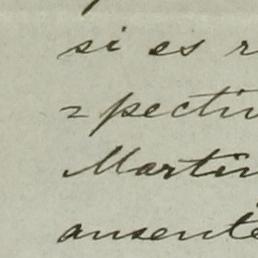 si es r
=pectiv
Martin
ausente